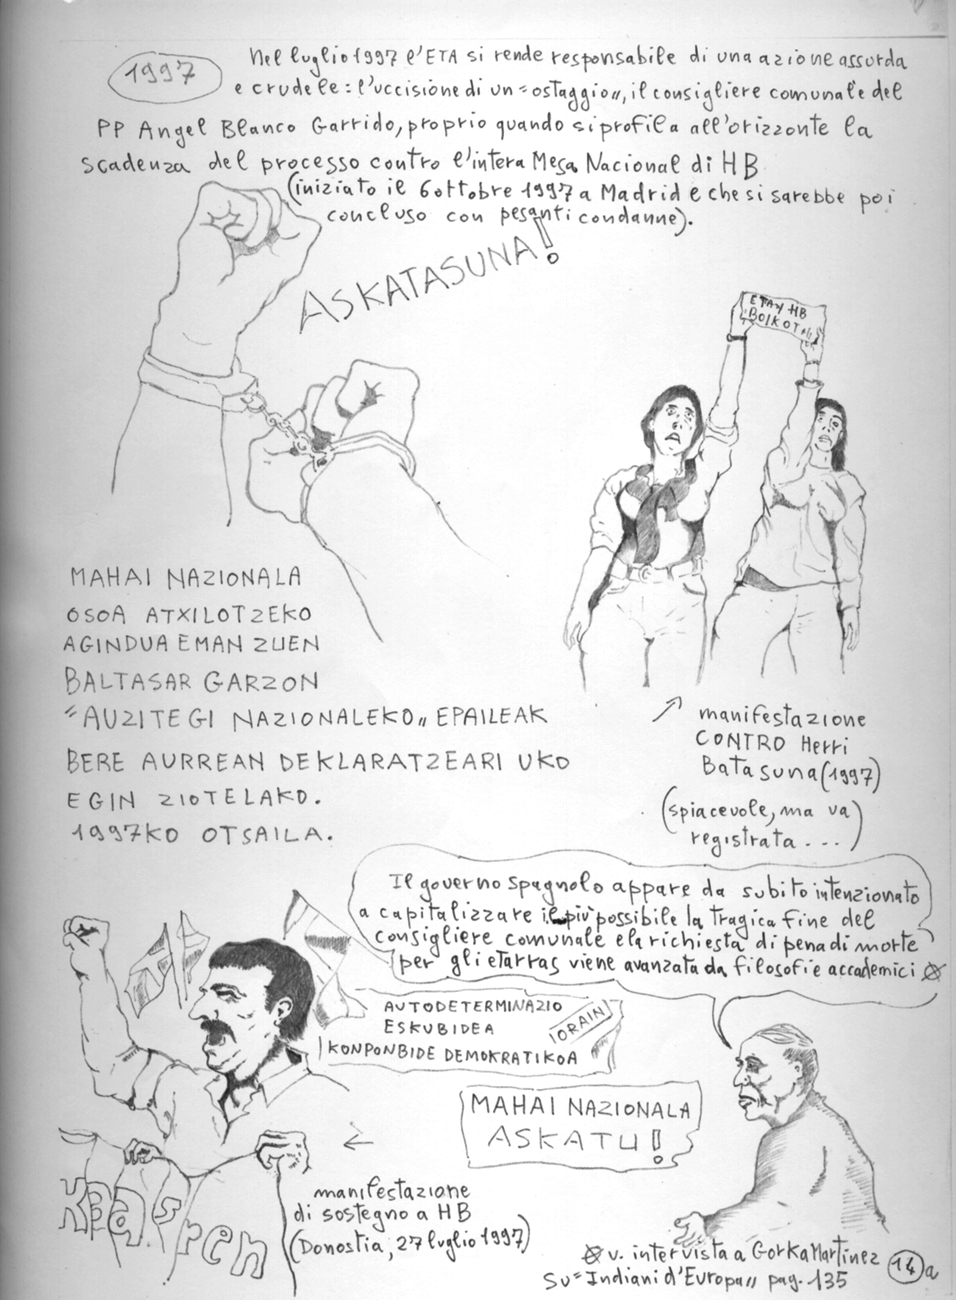 1997
Nel luglio 1997 l'ETA si rende responsabile di una azione assurda
e crudele: l'uccisione di un "ostaggio", il consigliere comunale del
PP Angel Blanco Garrido, proprio quando si profila all'orizzonte la
scadenza del processo contro l'intera Mesa Nacional di HB
(iniziato il 6 ottobre 1997 a Madrid e che si sarebbe poi
concluso con pesanti condanne).
ASKATASUNA!
ETAK HB
BOIKOT
MAHAI NAZIONALA
OSOA ATXILOTZEKO
AGINDUA EMAN ZUEN
BALTASAR GARZON
"AUZITEGI NAZIONALEKO" EPAILEAK
BERE AURREAN DEKLARATZEARI UKO
EGIN ZIOTELAKO.
1997KO OTSAILA.
manifestazione
CONTRO Herri
Batasuna (1997)
(spiacevole, ma va
registrata...)
Il governo spagnolo appare da subito intenzionato
a capitalizzare il più possibile la tragica fine del
consigliere comunale e la richiesta di pena di morte
per gli etarras viene avanzata da filosofi e accademici
AUTODETERMINAZIO
ESKUBIDEA
ORAIN
KONPONBIDE DEMOKRATIKOA
MAHAI NAZIONALA
ASKATU!
manifestazione
di sostegno a HB
(Donostia, 27 luglio 1997)
v. intervista a Gorka Martinez
su "Indiani d'Europa" pag. 135
14a